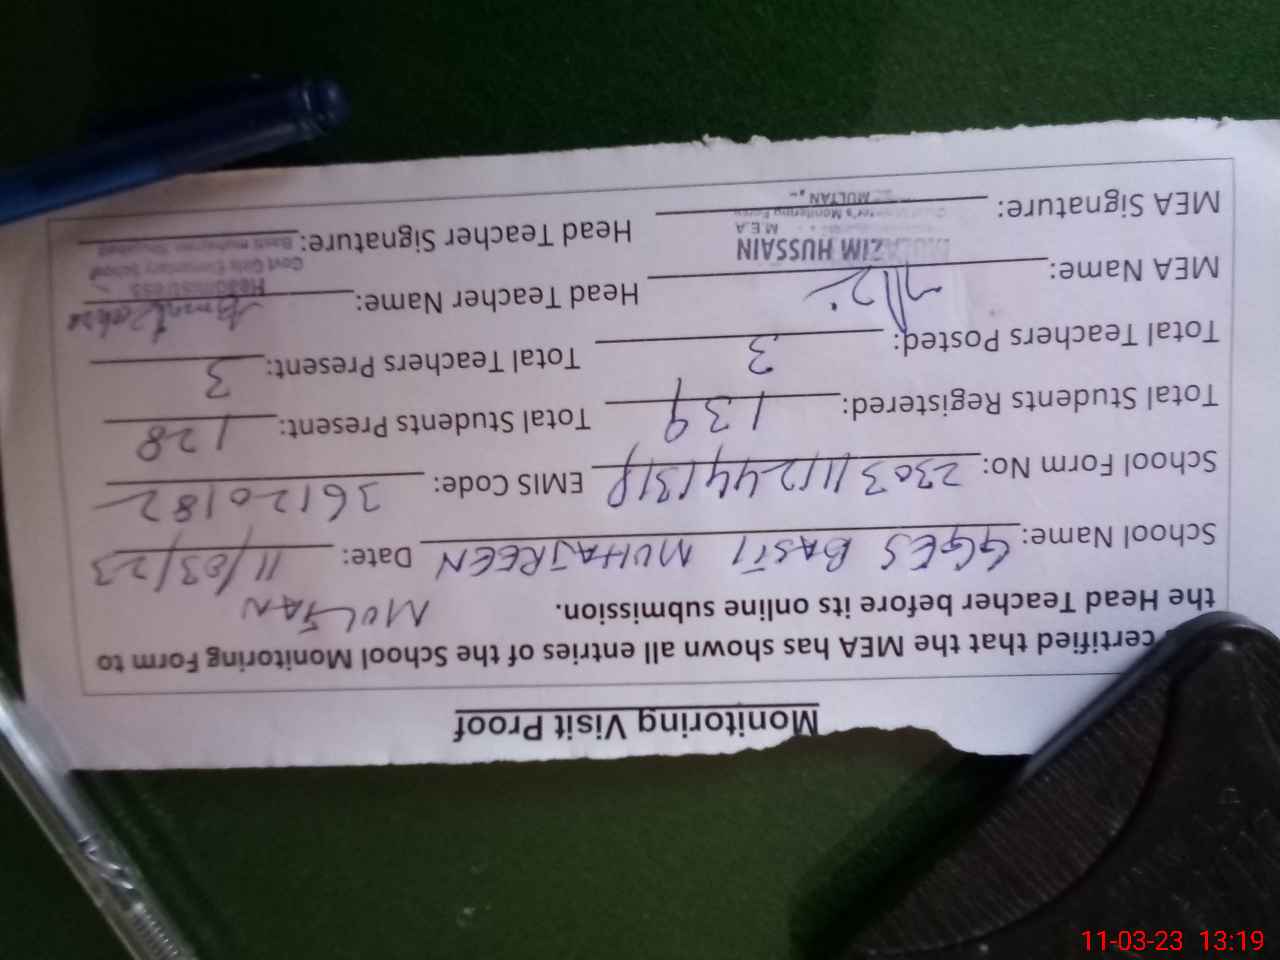 Monitoring Visit Proof
certified that the MEA has shown all entries of the School Monitoring Form to
the Head Teacher before its online submission. MULTAN
School Name: GGES BASTI MUHAJREEN Date: 11/03/23
School Form No: EMIS Code: 36120182
Total Students Registered: 139 Total Students Present: 128
Total Teachers Posted: 3 Total Teachers Present: 3
MEA Name: Head Teacher Name:
Headmistress
ZIM HUSSAIN Govt Girls Elementary School
M.E.A
MEA Signature: Head Teacher Signature:
Monitoring Force
MULTAN
11-03-23 13:19